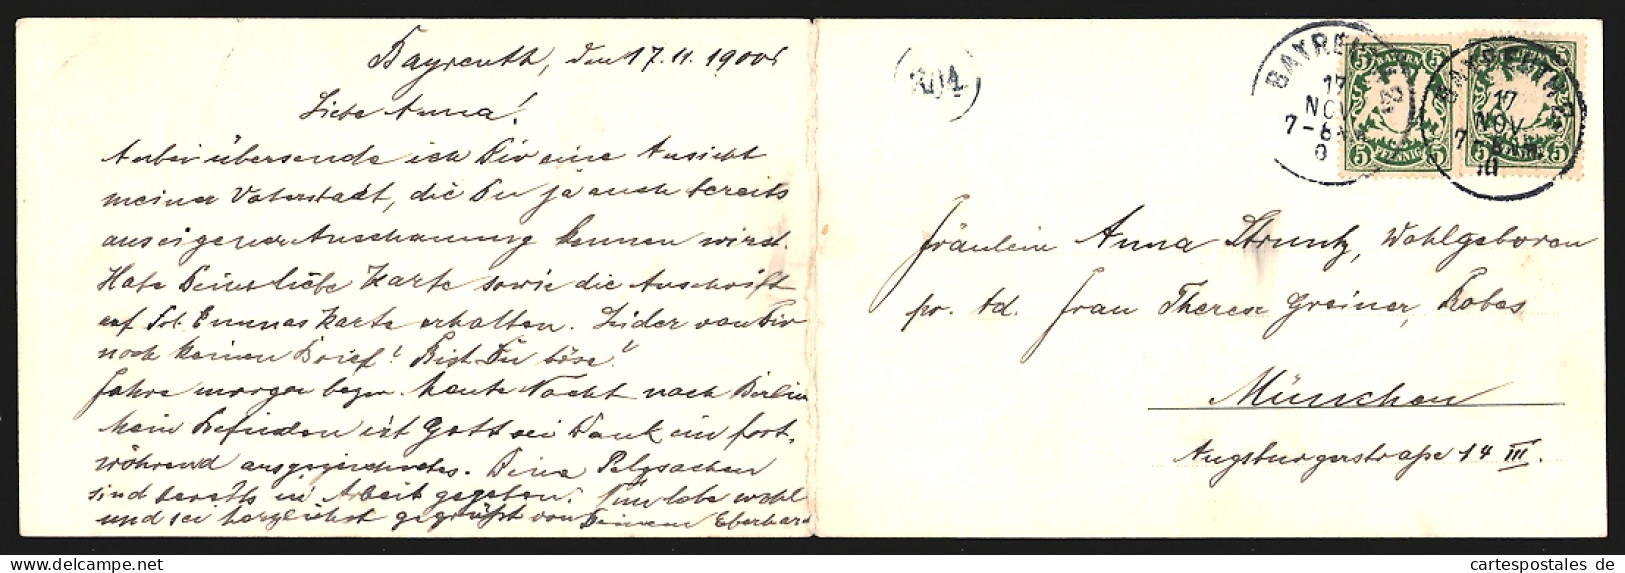 Bayreuth, den 17.11.1900
Liebe Anna!
Anbei übersende ich Dir eine Ansicht
meiner Vaterstadt, die Du ja auch bereits
aus eigener Anschauung kennen wirst.
Habe Deine liebe Karte sowie die Anschrift
auf Frl. Emmas Karte erhalten. Leider von Dir
noch keinen Brief! Bist Du böse!
Fahre morgen bezw. heute Nacht nach Berlin
Mein Befinden ist Gott sei Dank ein fort-
während ausgezeichnetes. Deine Pelzsachen
sind bereits in Arbeit gegeben. Nun lebe wohl
und sei herzlichst gegrüßt von Deinem Eberhard
BAYREUTH
17
NOV
7-8
BAYERN
5 5
5 PFENNIG 5
BAYREUTH
17
NOV
7-8
5
5 5
Fräulein Anna Struntz, Wohlgeboren
pr. Ad. Frau Therese Greiner, Robes
München
Augsburgerstraße 14 III.
www.cartespostales.de